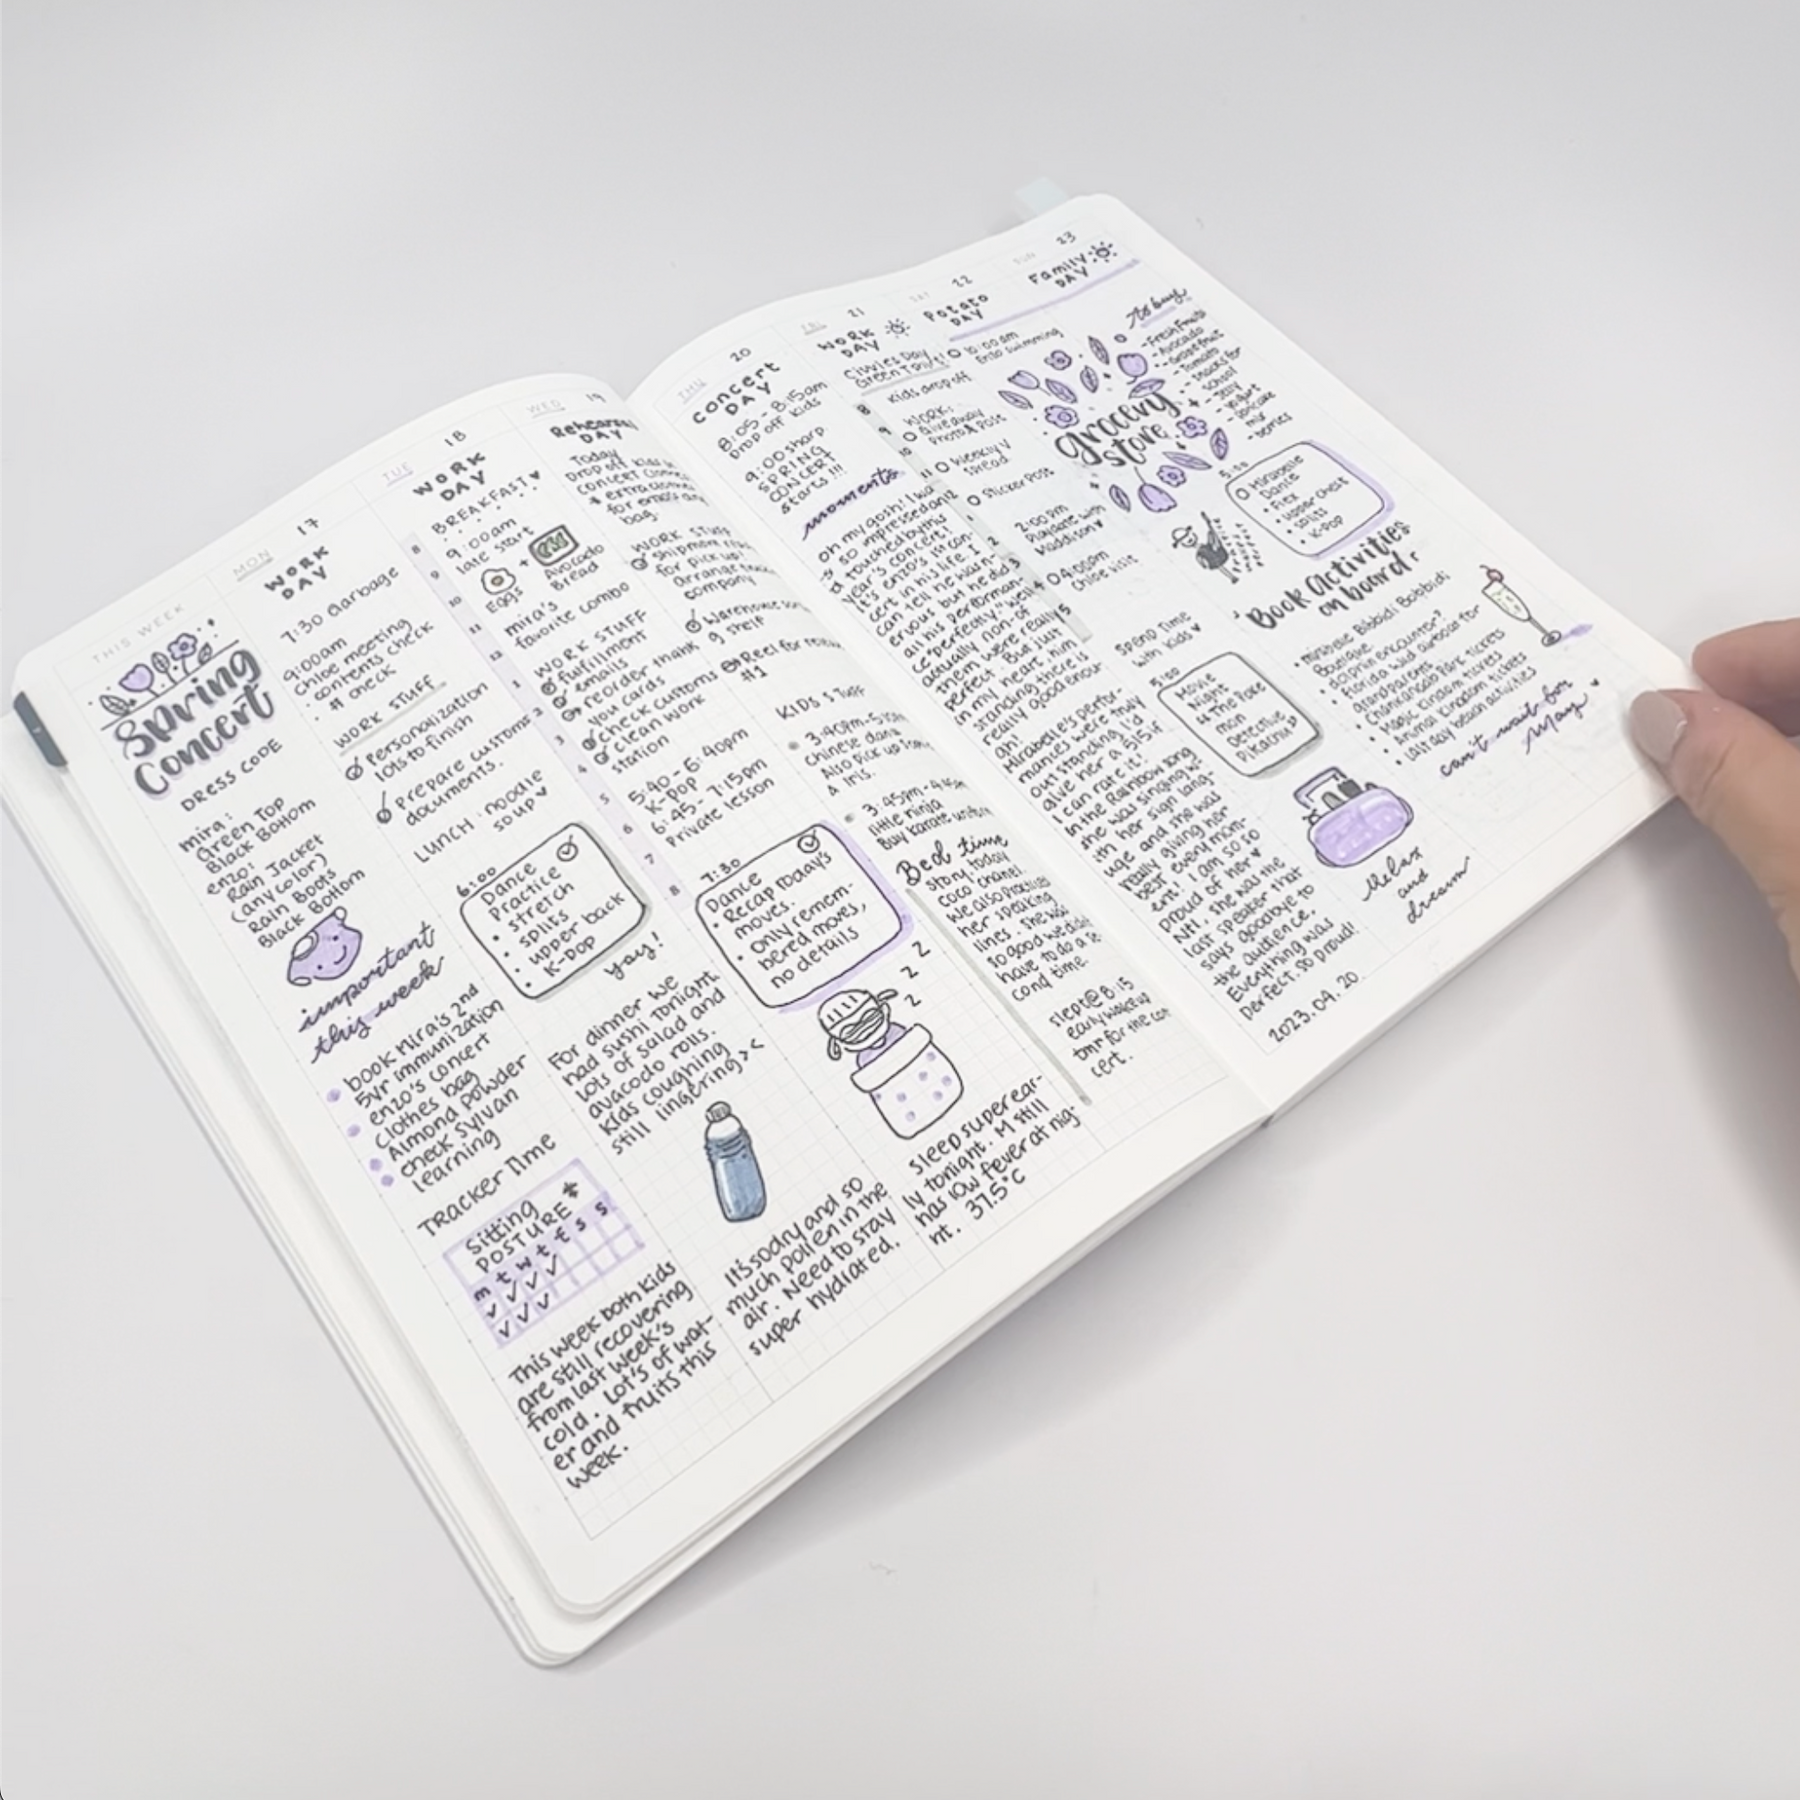 THIS WEEK
Spring
Concert
DRESS CODE
mira:
Green Top
Black Bottom
enzo:
Rain Jacket
(any color)
Rain Boots
Black Bottom
important
this week
book Mira's 2nd
5yr immunization
enzo's concert
clothes bag
Almond powder
check Sylvan
learning
TRACKER TIME
Sitting
POSTURE
m t w t f s s
This week both kids
are still recovering
from last week's
cold. Lot's of wat-
er and fruits this
week.
MON 17
WORK
DAY
7:30 Garbage
9:00am
Chloe meeting
• contents check
• # check
WORK STUFF
Personalization
lots to finish
Prepare customs
documents.
LUNCH: noodle
soup ♥
6:00
Dance
Practice
• stretch
• splits
• upper back
• K-POP
yay!
For dinner we
had sushi tonight.
lots of salad and
avacodo rolls.
Kids coughing
still lingering > <
It's so dry and so
much pollen in the
air. Need to stay
super hydrated.
TUE 18
WORK
DAY
8
9
10
11
12
1
2
3
4
5
6
7
8
BREAKFAST ♥
9:00am
late start
+
Eggs
Avocado
Bread
mira's
favorite combo
WORK STUFF
fulfillment
emails
reorder thank
you cards
check customs
clean work
station
5:40-6:40pm
K-POP
6:45-7:15pm
Private lesson
7:30
Dance
• Recap today's
moves.
• only remem-
bered moves,
no details
z z z
sleep super ear-
ly tonight. M still
has low fever at nig-
ht. 37.5°C
WED 19
Rehearsal
DAY
Today
Drop off kids
concert
+ extra
for
bag.
WORK STUFF
Shipment
for pick up!
Arrange
company
Warehouse
g shelf
Reel for
#1
KIDS STUFF
3:40pm-5
chinese dana
Also pick up
& Iris.
3:45pm-4
little ninja
Buy karate
Bed time
story: today
coco chanel.
We also practiced
her speaking
lines. She was
so good we didn't
have to do a se-
cond time.
slept@8:15
early wakeup
tmr for the con-
cert.
THU 20
concert
DAY
8:05-8:15am
Drop off kids
9:00 sharp.
SPRING
CONCERT
starts!!!
moments
oh my gosh! I wa-
s so impressed an-
d touched by this
year's concert!
It's enzo's 1st con-
cert in his life. I
can tell he was n-
ervous but he did
all his performan-
ce "perfectly." Well
actually non-of
them were really
perfect. But just
in my heart, him
standing there is
really good enou-
gh!
Mirabelle's perfor-
mances were truly
outstanding. I'd
give her a 5/5 if
I can rate it!
In the Rainbow song
she was singing w-
ith her sign lang-
uage and she was
really giving her
best every mom-
ent! I am so so
proud of her ♥
NH, she was the
last speaker that
says goodbye to
the audience.
Everything was
perfect. So proud!
2023.04.20.
FRI 21
WORK
DAY
Green
Kids drop off
8
9
10
11
2
4
5
WORK:
Giveaway
Photo & Post
Weekly V
spread
Sticker Post
2:00 pm
Playdate with
Maddison ♥
04:00pm
Chloe visit
Spend Time
with kids ♥
5:00
Movie
Night
Detective
Pikachu
Relax
and
dream
SAT 22
Potato
DAY
10:00am
Enzo swimming
grocery
store
SUN 23
Family
DAY
to buy
- Fresh Fruits
- Avocado
- Grapefruit
- Tomato
- snacks for
school
- Jelly
- yogurt
- pancake
mix
- berries
5:00
Mirabelle
Dance
• Flex
• upper chest
• splits
• K-POP
Book Activities
on board:
• mirabelle Bibbidi Bobbidi
Boutique
• dolphin encounter?
• Florida wild airboats for
grandparents
• Park tickets
• Magic Kingdom tickets
• Animal Kingdom tickets
• last day beach activities
can't wait for
May ♥